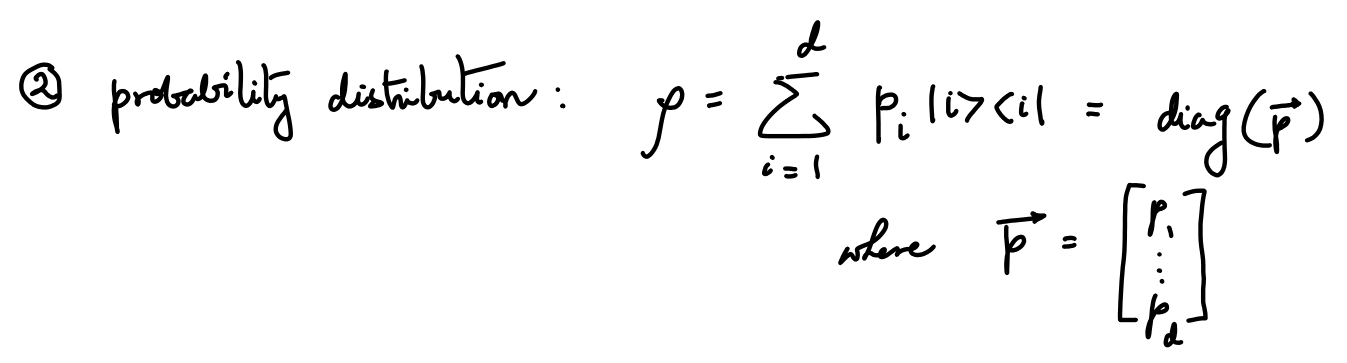 ② probability distribution : ρ = \sum_{i=1}^{d} p_i |i><i| = diag(\vec{p})
where \vec{p} = \begin{bmatrix} p_1 \\ \vdots \\ p_d \end{bmatrix}